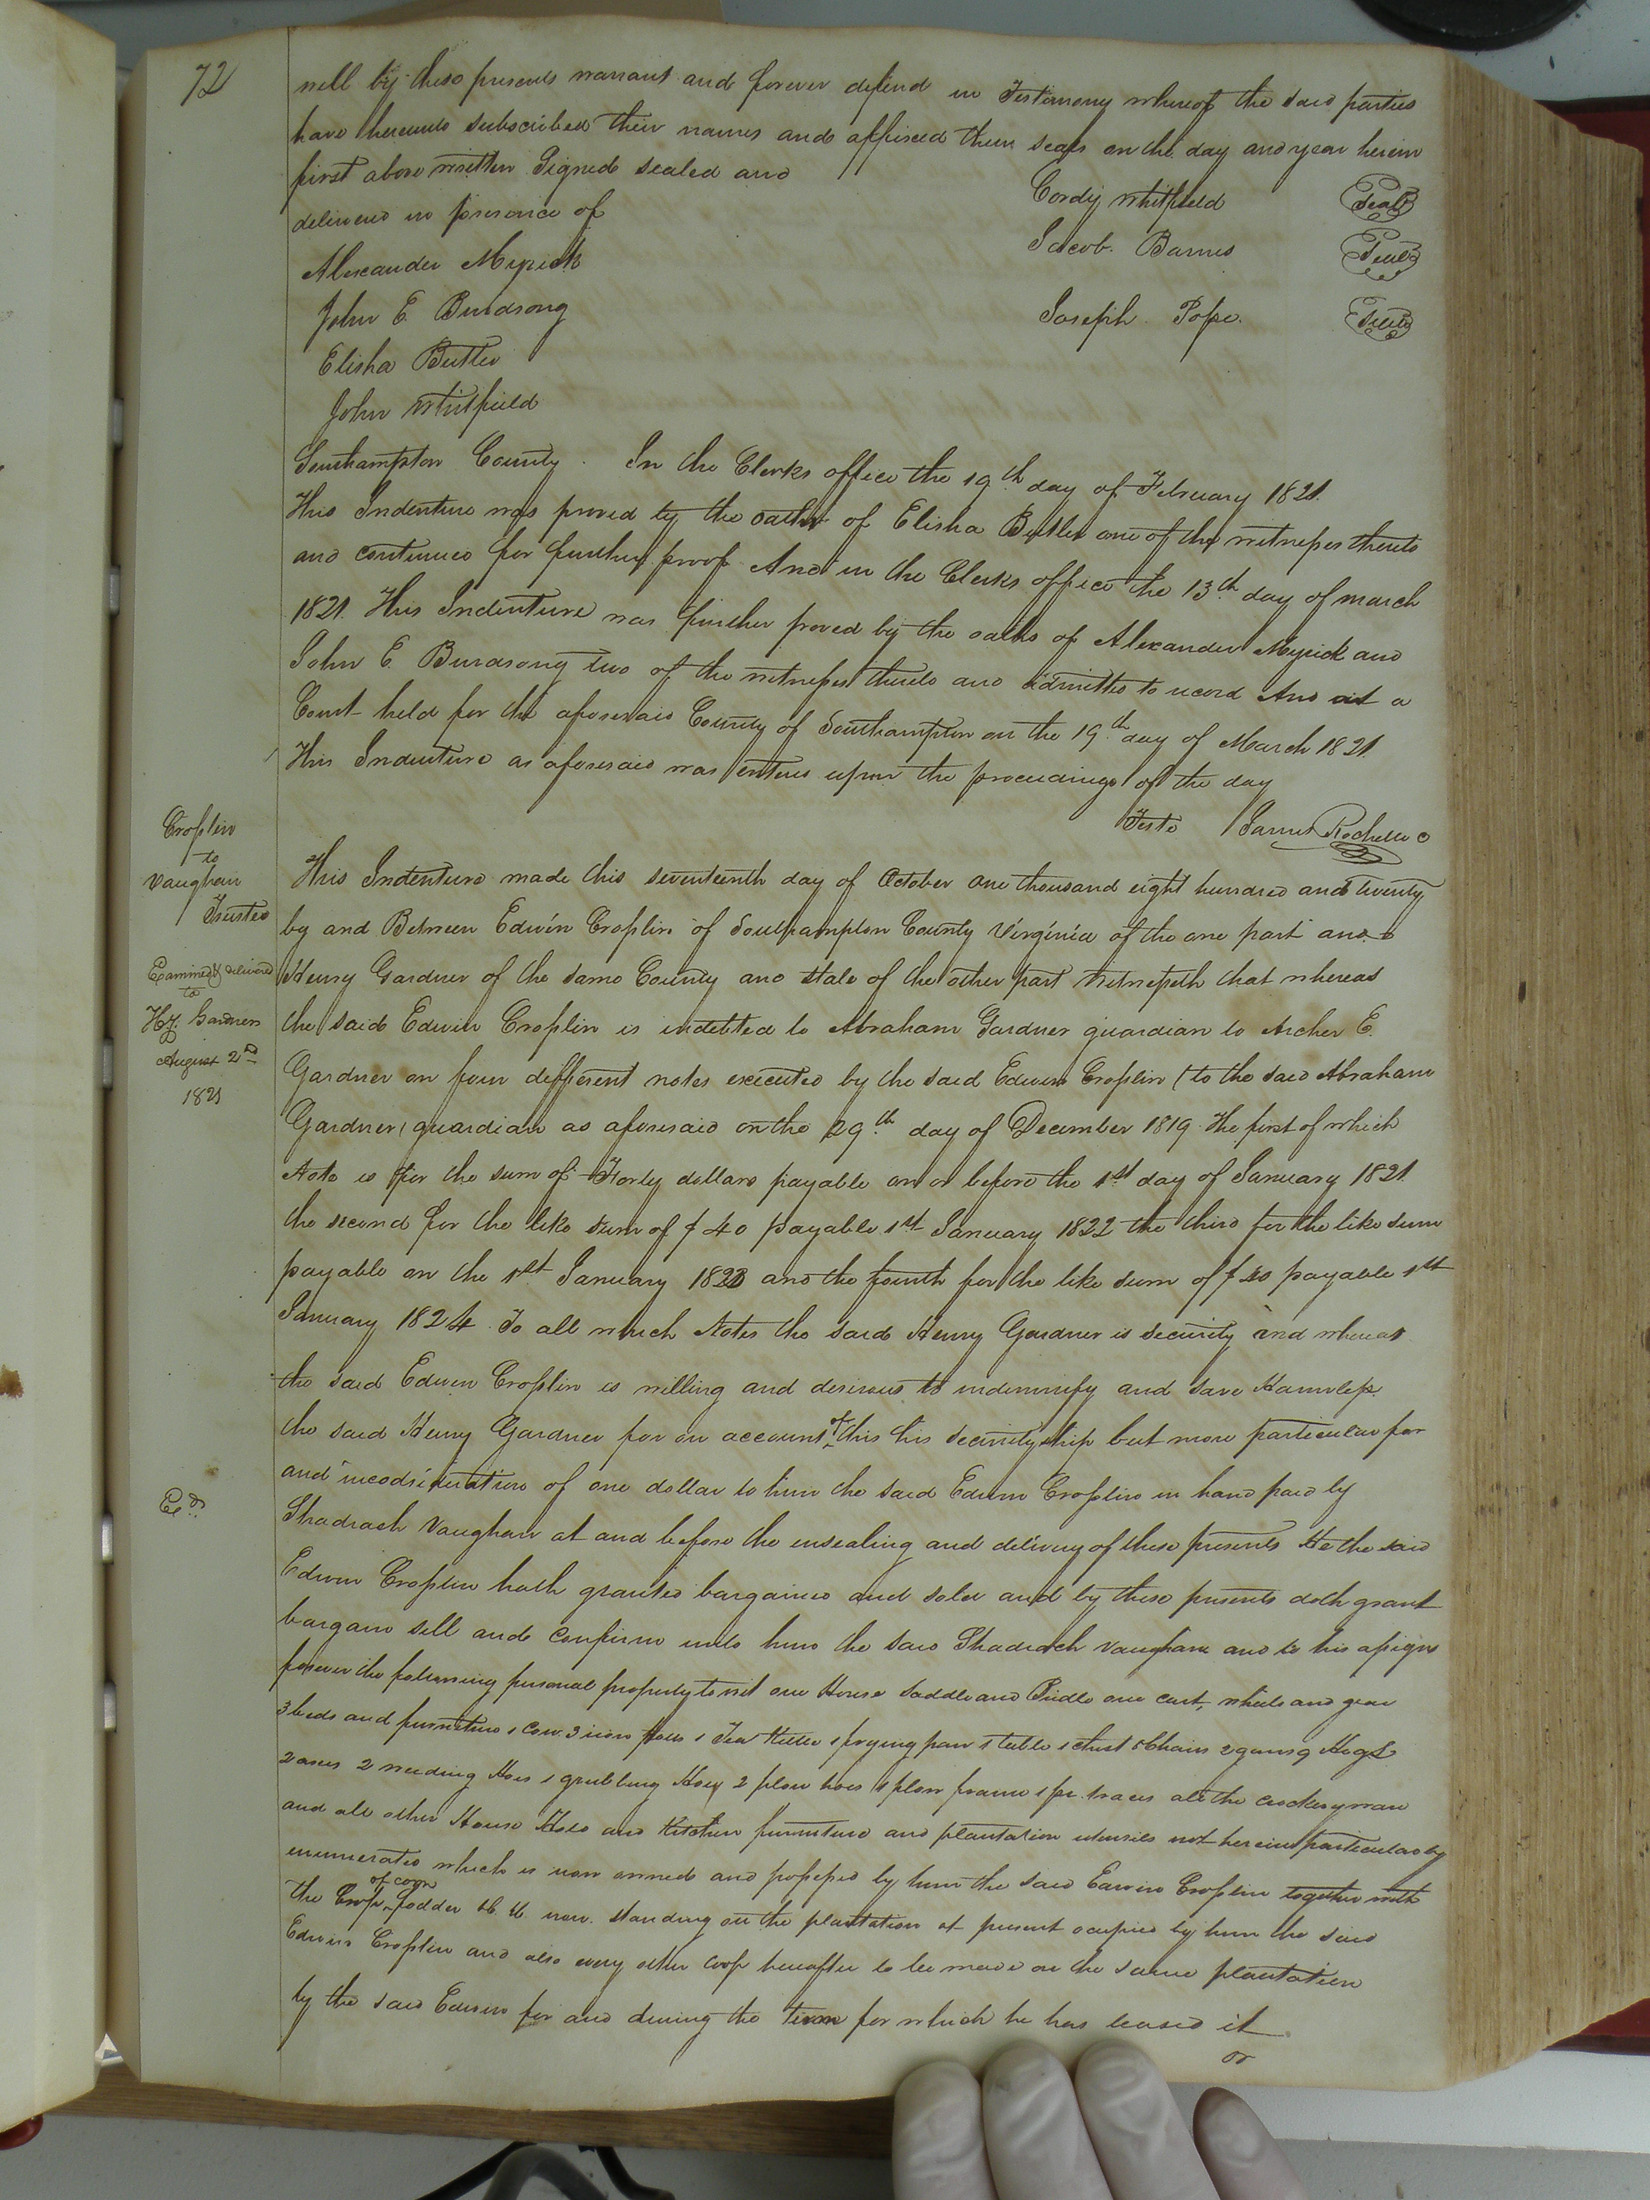 72
will by these presents warrant and forever defend in Testimony whereof the said parties
have hereunto subscribed their names and affixed their seals on the day and year herein
first above written Signed sealed and
delivered in presence of
Cordy Whitfield Seal
Alexander Myrick
Jacob Barnes Seal
John E Burdsong
Joseph Pope Seal
Elisha Butler
John Whitfield
Southampton County. In the Clerks office the 19th day of February 1821.
This Indenture was proved by the oath of Elisha Butler one of the witnesses thereto
and continued for further proof And in the Clerks office the 13th day of march
1821. This Indenture was further proved by the oaths of Alexander Myrick and
John E Burdsong two of the witnesses thereto and admitted to record And at a
Court held for the aforesaid County of Southampton on the 19th day of March 1821
This Indenture as aforesaid was entered upon the proceedings of the day
Teste James Rochelle C
Crosslin
to
Vaughan
Trustee
Examined & delivered
to
Hy. Gardner
August 2nd
1821
This Indenture made this seventeenth day of October one thousand eight hundred and twenty
by and Between Edwin Crosslin of Southampton County Virginia of the one part and
Henry Gardner of the same County and state of the other part Witnesseth that whereas
the said Edwin Crosslin is indebted to Abraham Gardner guardian to Archer E.
Gardner on four different notes executed by the said Edwin Crosslin (to the said Abraham
Gardner) guardian as aforesaid on the 29th day of December 1819 The first of which
Note is for the sum of Forty dollars payable on or before the 1st day of January 1821
the second for the like sum of $40 payable 1st January 1822 the third for the like sum
payable on the 1st January 1823 and the fourth for the like sum of $40 payable 1st
January 1824 To all which Notes the said Henry Gardner is security and whereas
the said Edwin Crosslin is willing and desirous to indemnify and save Harmless
the said Henry Gardner for on account of this his securityship but more particular for
and incodsideration of one dollar to him the said Edwin Crosslin in hand paid by
Exd.
Shadrach Vaughan at and before the ensealing and delivery of these presents He the said
Edwin Crosslin hath granted bargained and sold and by these presents doth grant
bargain sell and confirm unto him the said Shadrach Vaughan and to his assigns
forever the following personal property to wit one Horse saddle and Bridle one cart, wheels and gear
3 beds and furniture 1 cow 3 iron pots 1 Tea Kittle 1 frying pan 1 table 1 chest Chairs Hogs
2 axes 2 weeding Hoes 1 grubbing Hoe 2 plow hoes 1 plow frame 1 pr. traces all the crockery ware
and all other House Hold and Kitchen furniture and plantation utensils not herein particularly
enumerated which is now owned and possessed by him the said Edwin Crosslin together with
the Crop of corn fodder &c &c now standing on the plantation at present occupied by him the said
Edwin Crosslin and also every other crop hereafter to be made on the same plantation
by the said Edwin for and during the term for which he has leased it
or